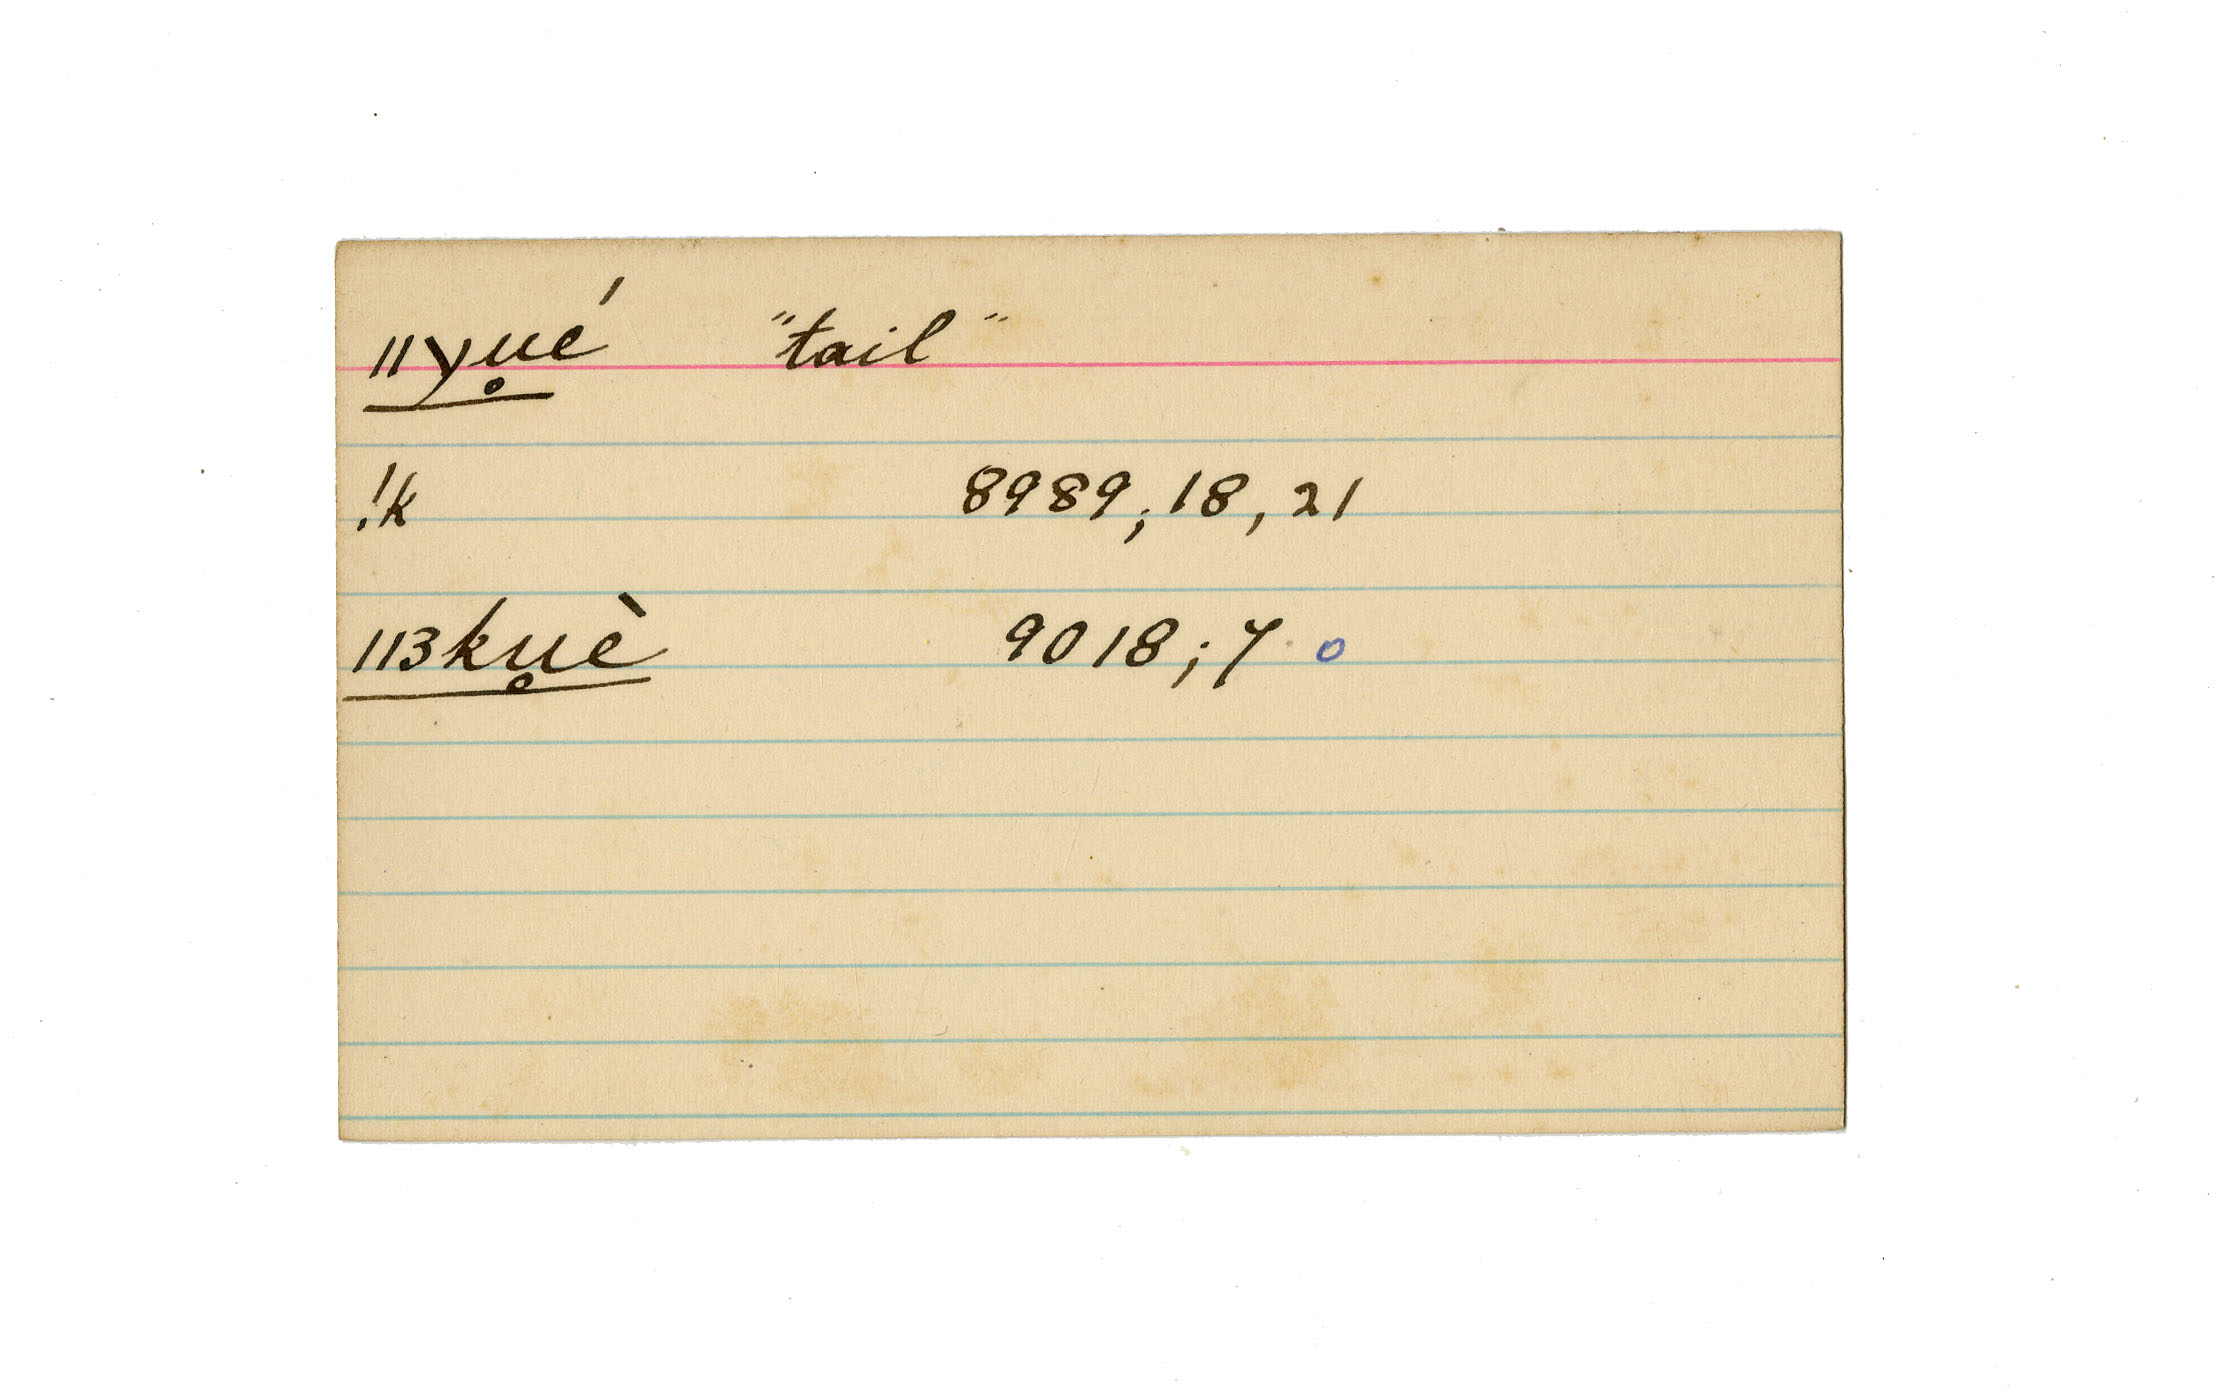 11yu̥é ́ "tail"
!k 8989;18,21
113ku̥è 9018;7 o